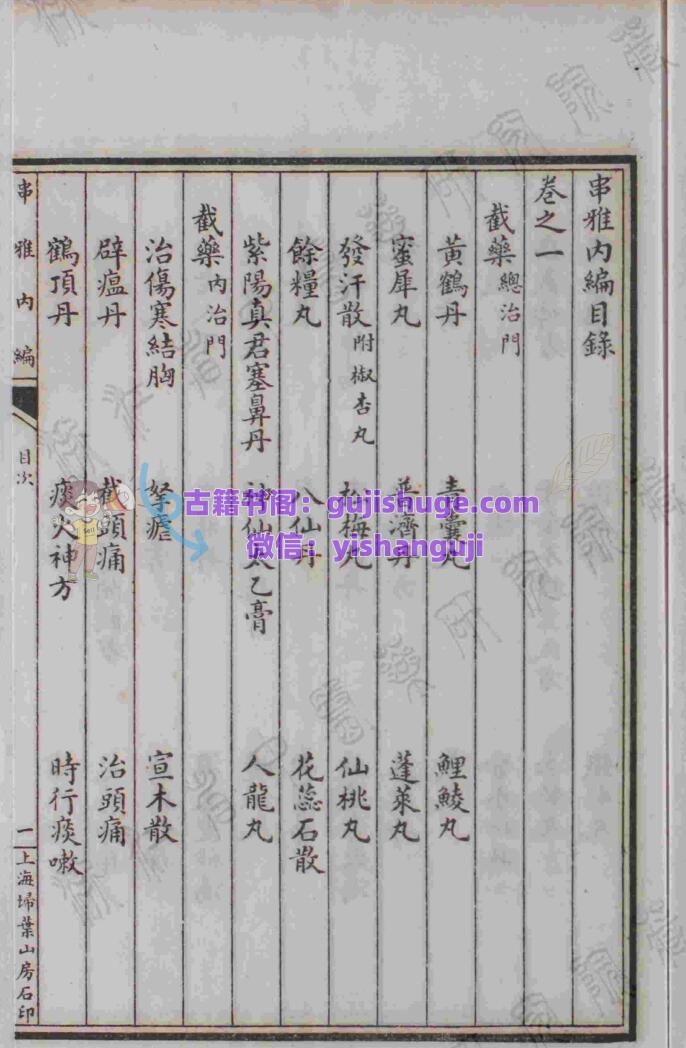 串雅內編目錄
卷之一
截藥 總治門
黃鶴丹 青囊丸 鯉鯪丸
蜜犀丸 普濟丹 蓬萊丸
發汗散 附椒杏丸 柏梅丸 仙桃丸
餘糧丸 八仙丹 花蕊石散
紫陽真君塞鼻丹 神仙太乙膏 人龍丸
截藥 內治門
治傷寒結胸 拏瘧 宣木散
辟瘟丹 截頭痛 治頭痛
鶴頂丹 痰火神方 時行痰嗽
串雅內編 目次 一 上海埽葉山房石印
古籍书阁：gujishuge.com
微信：yishanguji